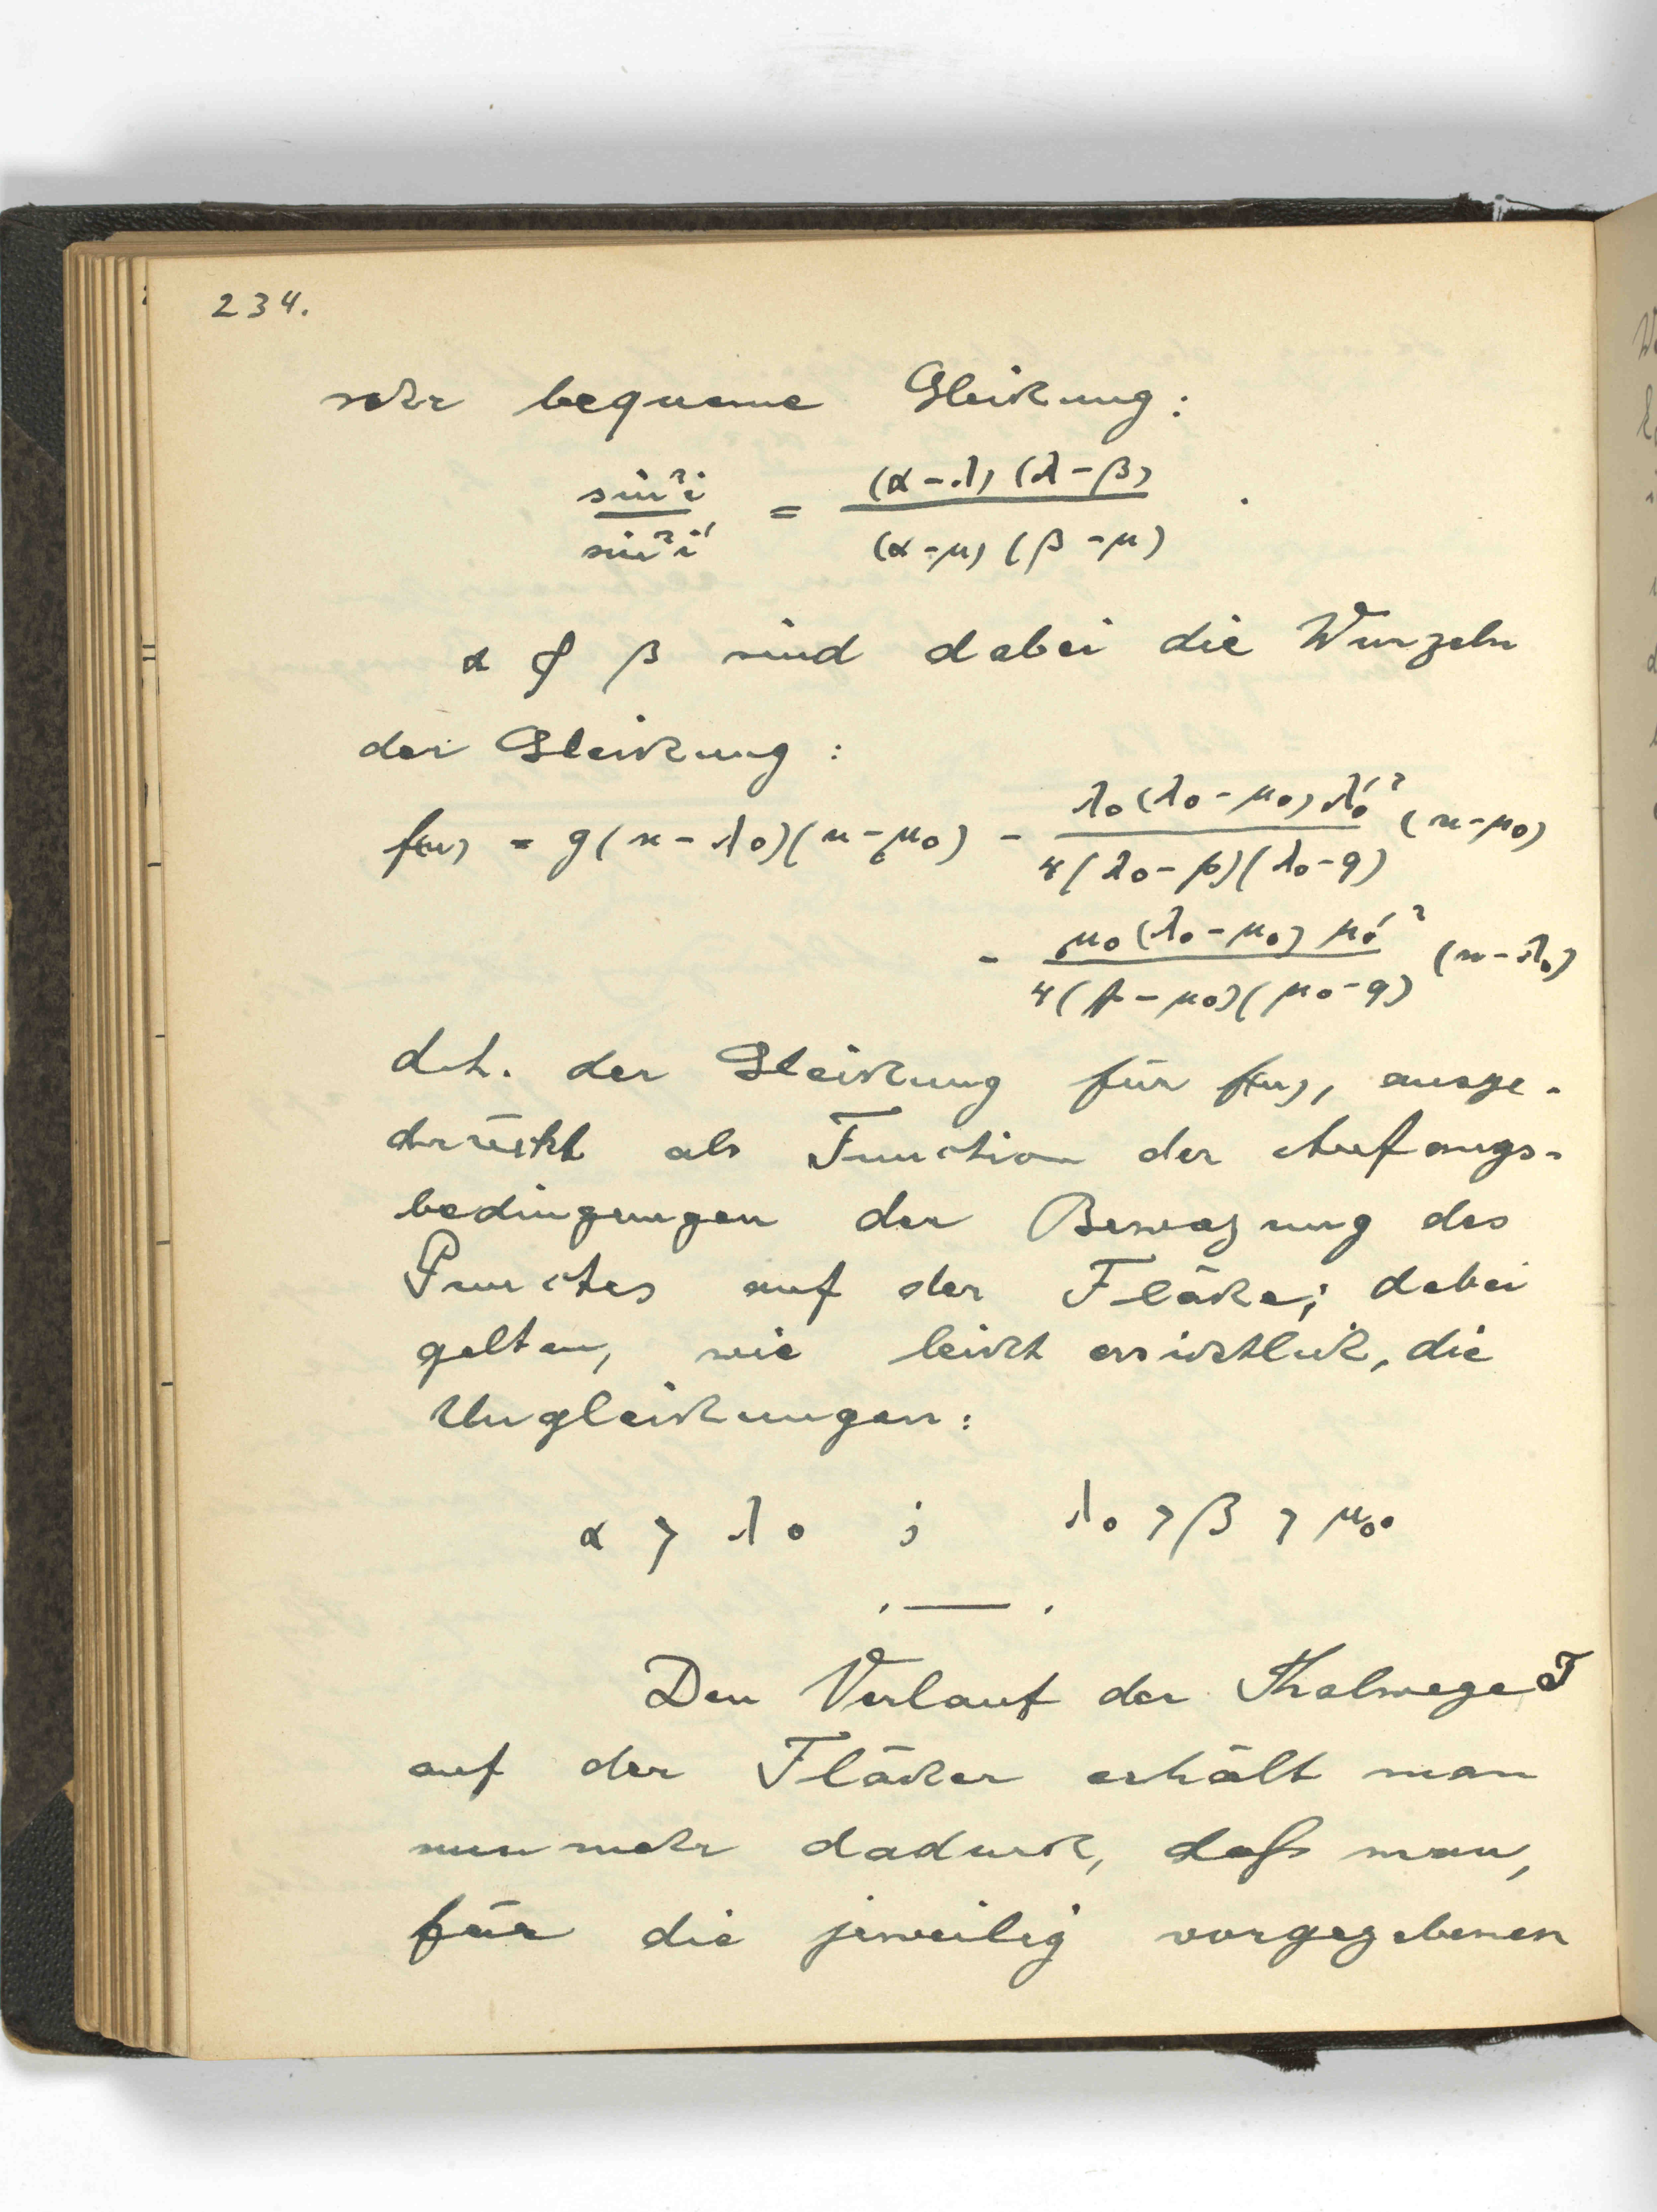 234.
sehr bequeme Gleichung:
sin²i / sin²i' = (α-λ)(λ-β) / (α-μ)(β-μ) .
α & β sind dabei die Wurzeln
der Gleichung:
f(u) = g(u-λ₀)(u-μ₀) - λ₀(λ₀-μ₀)λ₀'² / 4(λ₀-p)(λ₀-q) (u-μ₀)
- μ₀(λ₀-μ₀)μ₀'² / 4(p-μ₀)(μ₀-q) (u-λ₀)
d.h. der Gleichung für f(u), ausge-
drückt als Function der Anfangs-
bedingungen der Bewegung des
Punctes auf der Fläche; dabei
gelten, wie leicht ersichtlich, die
Ungleichungen:
α > λ₀ ; λ₀ > β > μ₀.
Den Verlauf der Thalwege T
auf der Flächen erhält man
nunmehr dadurch, daß man,
für die jeweilig vorgegebenen